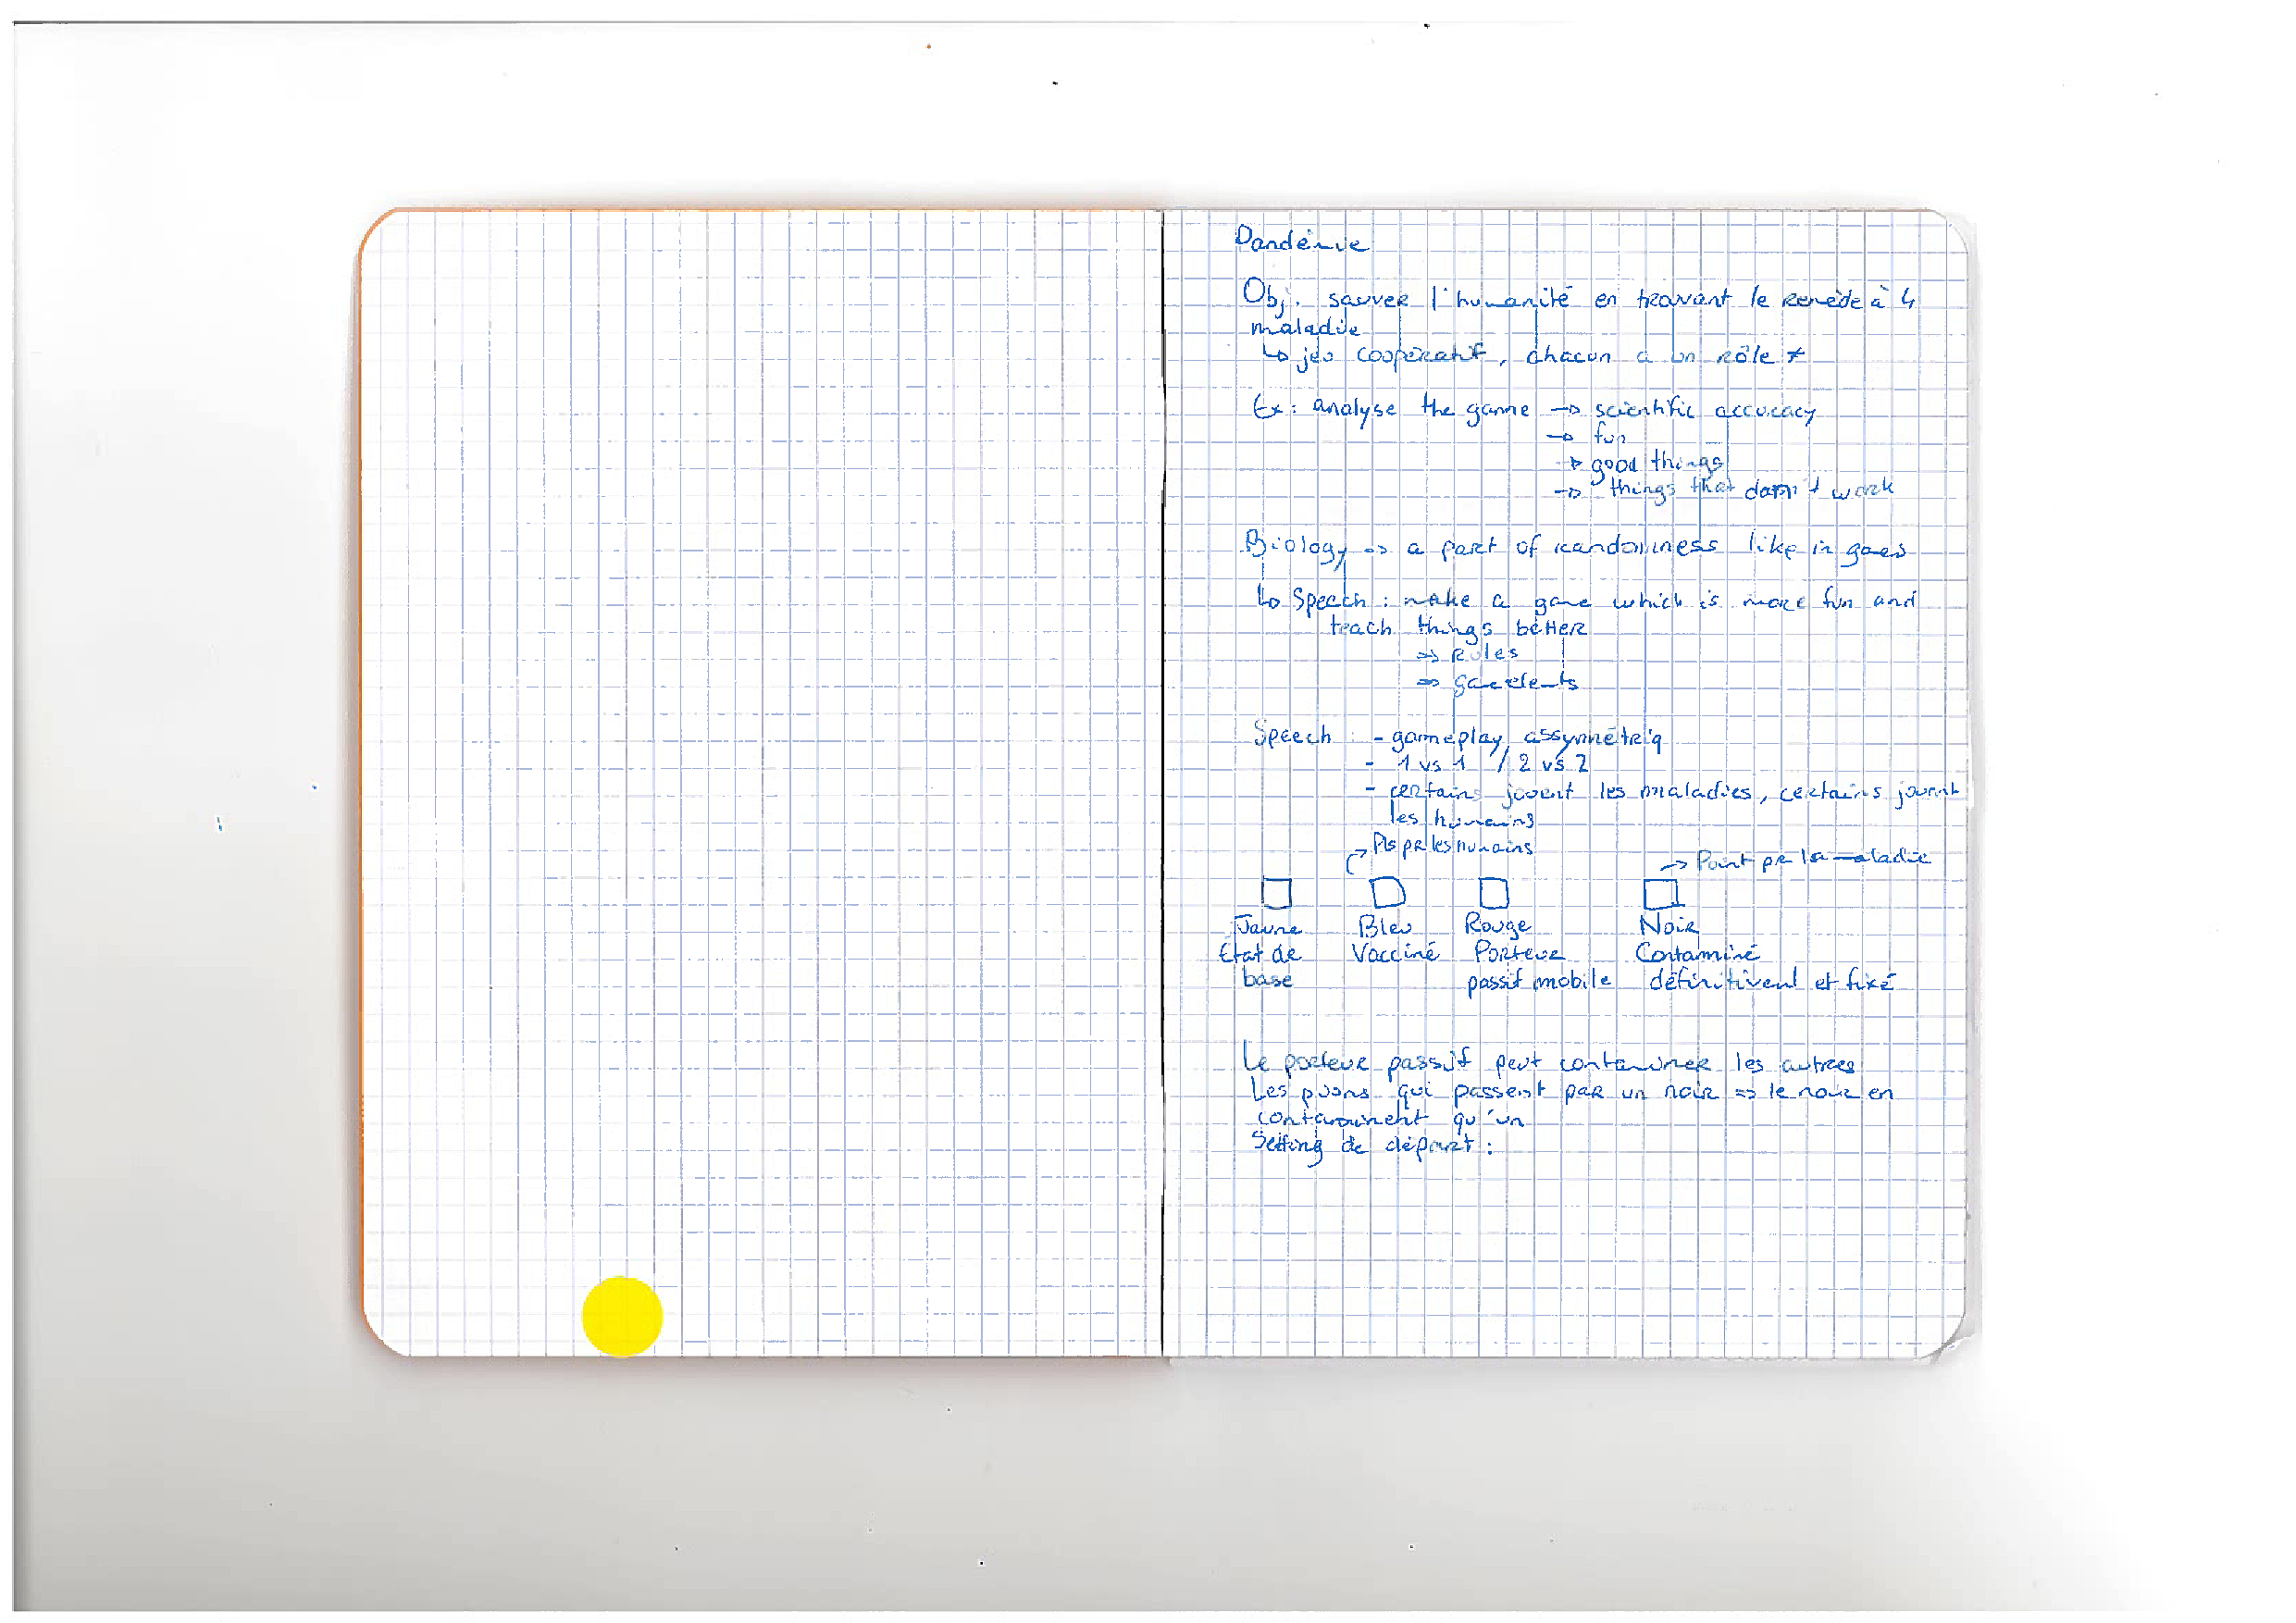 Pandémie
Obj. sauver l'humanité en trouvant le remède à 4
maladie
↳ jeu coopératif, chacun a un rôle ≠
Ex: analyse the game → scientific accuracy
→ fun
→ good things
→ things that doesn't work
Biology => a part of randomness like in games
↳ Speech : make a game which is more fun and
teach things better
=> rules
=> game elents
Speech : - gameplay assymétriq
- 1 vs 1 / 2 vs 2
- certains jouent les maladies, certains jouent
les humains
→ Pts pr les humains
→ Point pr la maladie
Jaune Bleu Rouge Noir
Etat de Vacciné Porteur Contaminé
base passif mobile définitivent et fixé
Le porteur passif peut contaminer les autres
Les pions qui passent par un noir => le noir en
contaminent qu'un
Setting de départ :